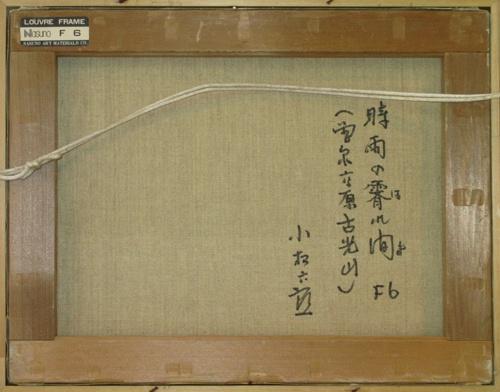 LOUVRE FRAME
Nasuno F 6
NASUNO ART MATERIALS CO.
時雨の霽れ間 F6
は ま
(曽尓高原古光山)
小松